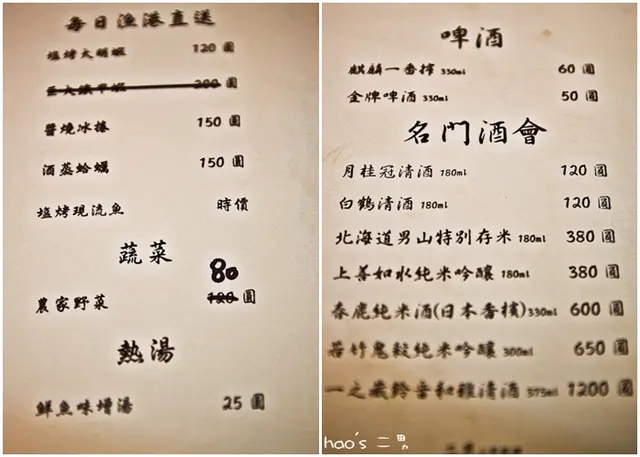 每日漁港直送
塩烤大明蝦 120 圓
200 圓
醬燒冰捲 150 圓
酒蒸蛤蠣 150 圓
塩烤現流魚 時價
蔬菜
80
農家野菜 120 圓
熱湯
鮮魚味增湯 25 圓
啤酒
麒麟一番搾 330ml 60 圓
金牌啤酒 330ml 50 圓
名門酒會
月桂冠清酒 180ml 120 圓
白鶴清酒 180ml 120 圓
北海道男山特別存米 180ml 380 圓
上善如水純米吟釀 180ml 380 圓
春鹿純米酒(日本香檳)330ml 600 圓
若竹鬼殺純米吟釀 300ml 650 圓
一之藏鈴音和雜清酒 375ml 1200 圓
hao's 二男